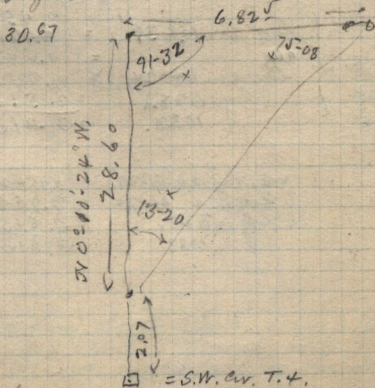 30.67
6.82⁵
91-32
75-08
28.60
13-20
2.07
= S.W. Cor. T.4.